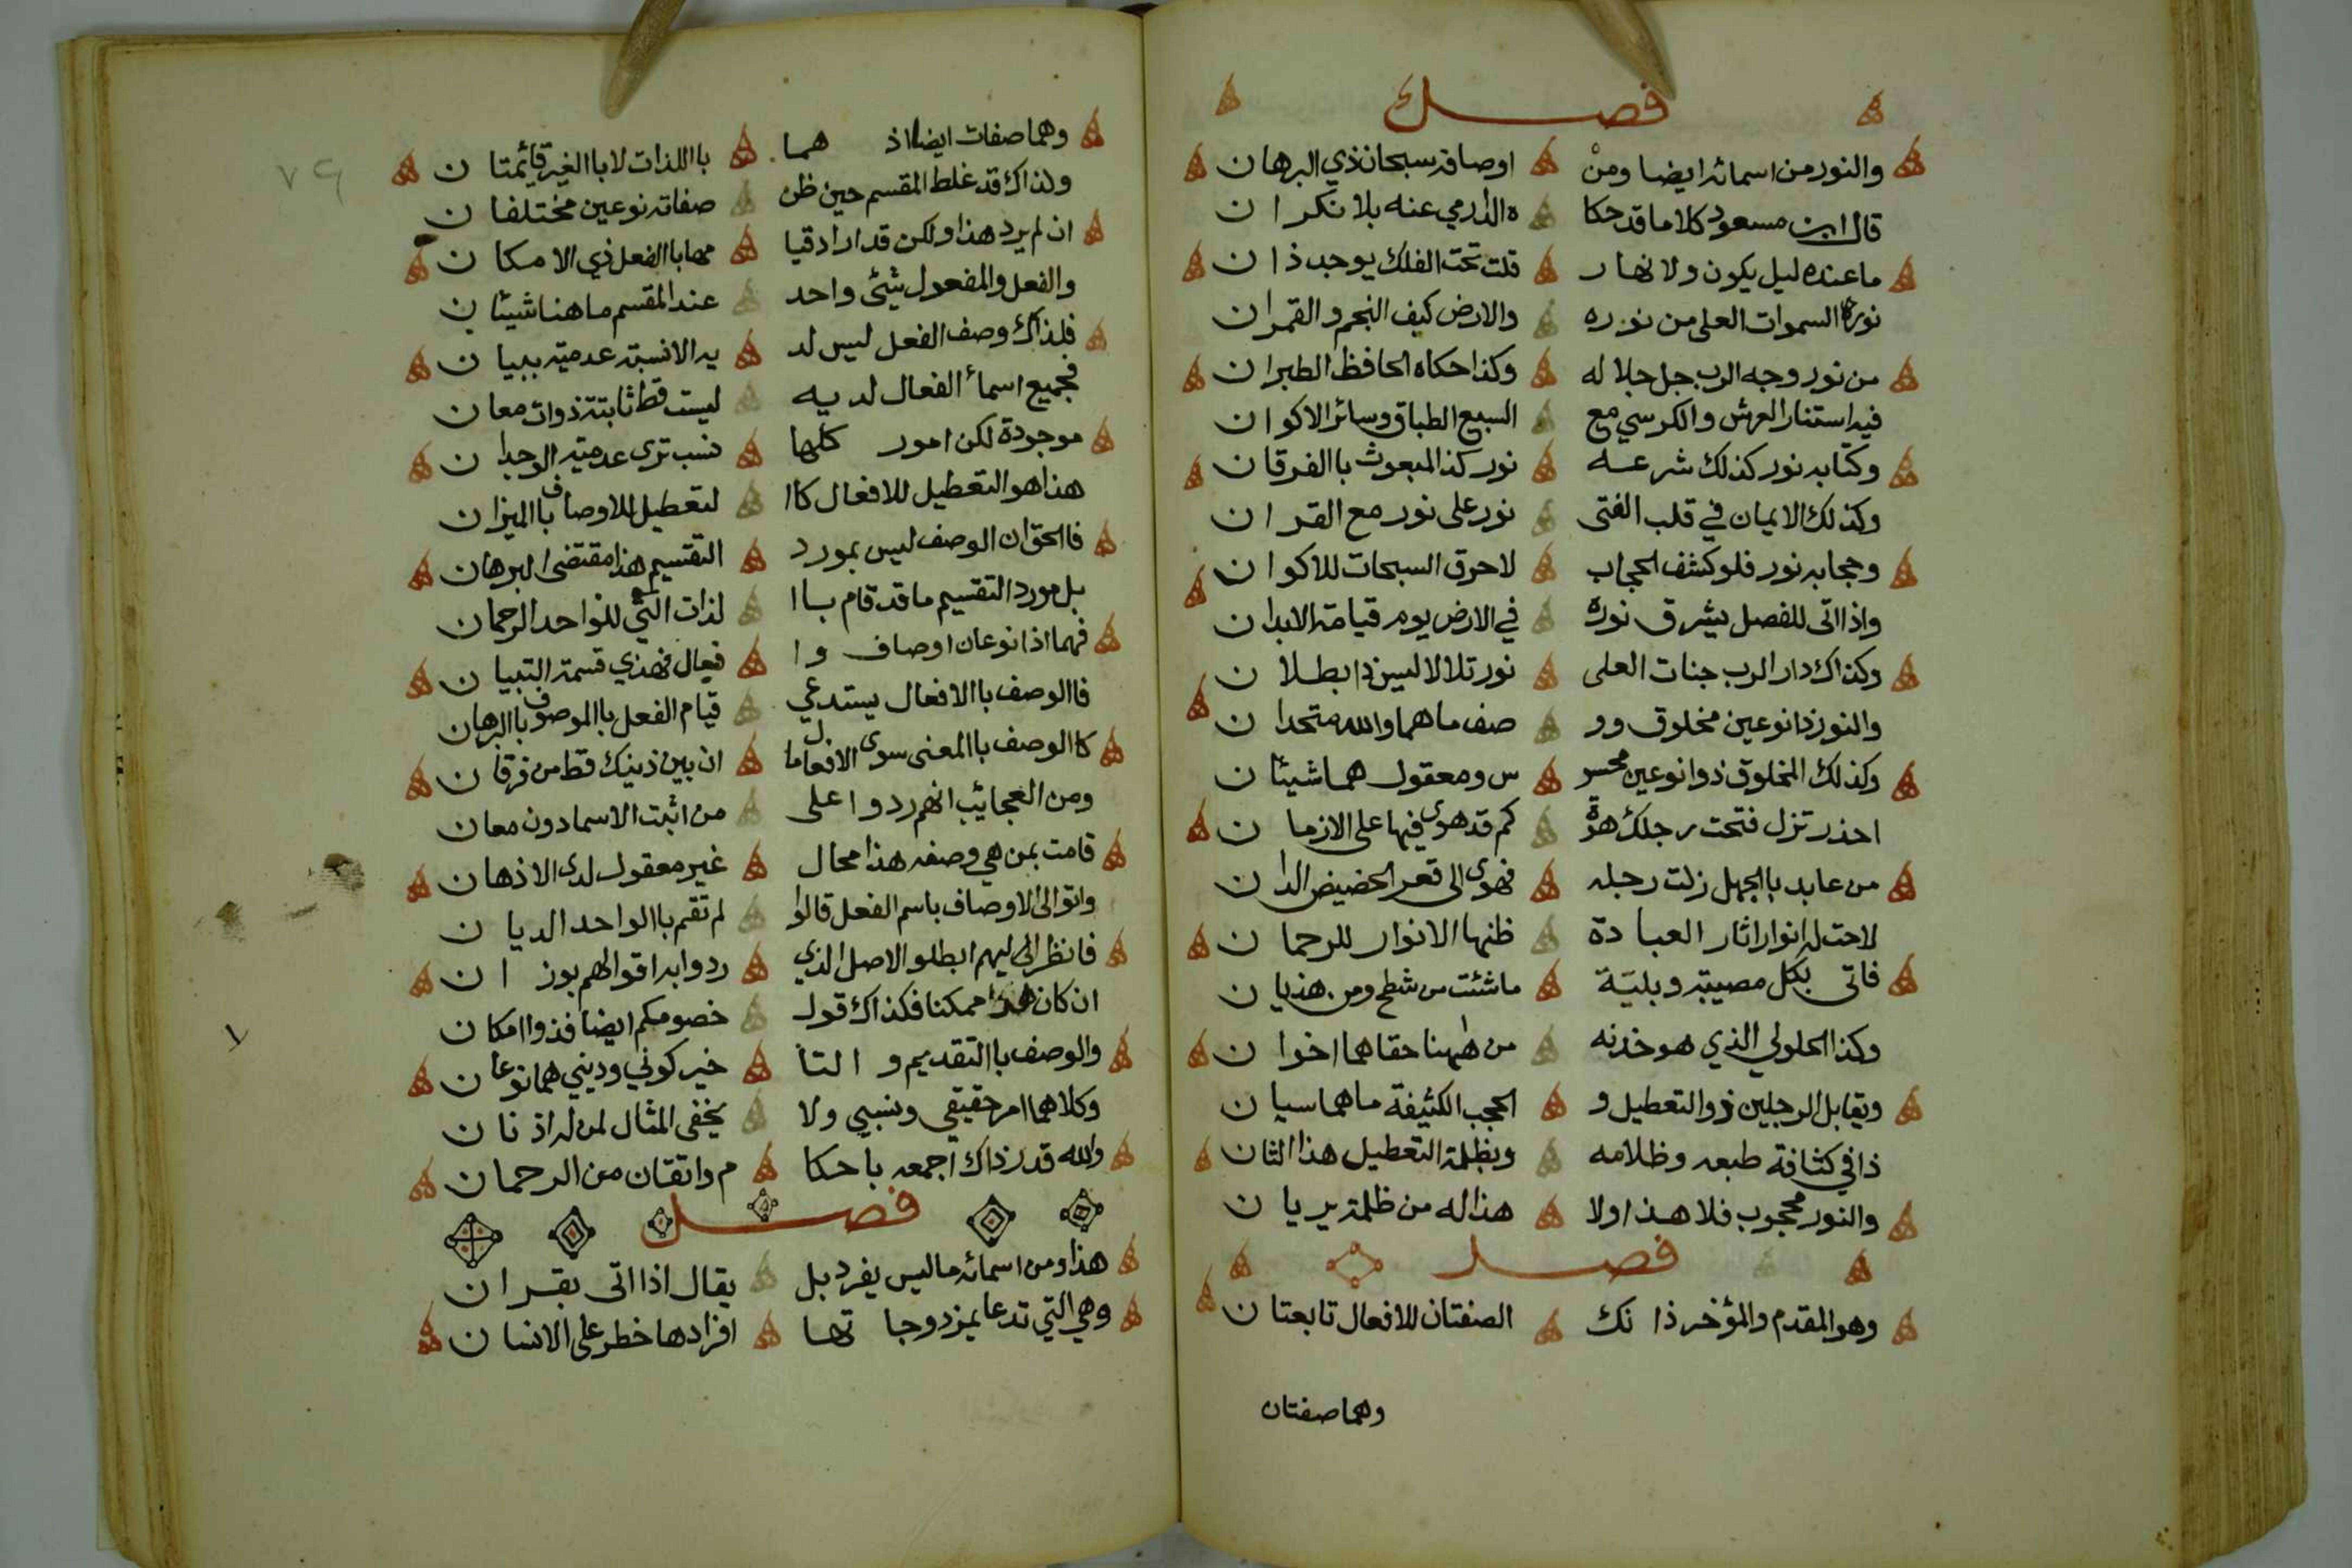 فصل
والنور من اسمائه ايضا ومن اوصافه سبحان ذي البرهان
قال ابن مسعود كلاما قد حكا ه الدارمي عنه بلا نكران
ما عنده ليل يكون ولا نهار قلت تحت الفلك يوجد ذان
نوره السموات العلى من نوره والارض كيف النجم والقمران
من نور وجه الرب جل جلاله وكذا حكاه الحافظ الطبران
فيه استنار العرش والكرسي مع السبع الطباق وسائر الاكوان
وكتابه نور كذلك شرعه نور كذا المبعوث باالفرقان
وكذلك الايمان في قلب الفتى نور على نور مع القران
وحجابه نور فلو كشف الحجاب لاحرق السبحات للاكوان
واذا اتى للفصل يشرق نوره في الارض يوم قيامة الابدان
وكذاك دار الرب جنات العلى نور تلالا ليس ذا بطلان
والنور ذا نوعين مخلوق وو صف ما هما والله متحدان
وكذلك المخلوق ذوا نوعين محسو س ومعقول هما شيئان
احذر تزل فتحت رجلك هوة كم قد هوى فيها على الازمان
من عابد باالجهل زلت رجله فهوى الى قعر الحضيض الدان
لاحت له انوار اثار العبادة ظنها الانوار للرحمان
فاتى بكل مصيبة وبلية ما شئت من شطح ومن هذيان
وكذا الحلولي الذي هو خدنه من ههنا حقا هما اخوان
ويقابل الرجلين ذو التعطيل و الحجب الكثيفة ما هما سيان
ذا في كثافة طبعه وظلامه وبظلمة التعطيل هذا الثان
والنور محجوب فلا هذا ولا هذا له من ظلمة يريان
فصل
وهو المقدم والمؤخر ذا نك الصفتان للافعال تابعتان
وهما صفتان
٧٩
وهما صفات ايضا اذ هما باالذات لا باالغير قائمتان
ولذاك قد غلط المقسم حين ظن صفاته نوعين مختلفان
ان لم يرد هذا ولكن قد اراد قيا مها باالفعل ذي الامكان
والفعل والمفعول شيئ واحد عند المقسم ما هنا شيئان
فلذاك وصف الفعل ليس لد يه الا نسبة عدمية ببيان
فجميع اسماء الفعال لديه ليست قط ثابتة ذوات معان
موجودة لكن امور كلها نسب ترى عدمية الوجدان
هذا هو التعطيل للافعال كاا لتعطيل للاوصاف باالميزان
فاالحق ان الوصف ليس بمورد التقسيم هذا مقتضى البرهان
بل مورد التقسيم ما قد قام باا لذات التي للواحد الرحمان
فهما اذا نوعان اوصاف وا فعال فهذي قسمة التبيان
فاالوصف باالافعال يستدعي قيام الفعل باالموصوف باالبرهان
كاالوصف باالمعنى سوى الافعال ما ان بين ذينك قط من فرقان
ومن العجائب انهم ردوا على من اثبت الاسما دون معان
قامت بمن هي وصفه هذا محال غير معقول لدى الاذهان
واتوا الى الاوصاف باسم الفعل قالوا لم تقم باالواحد الديان
فانظر اليهم ابطلو الاصل الذي ردوا به اقوالهم بوزان
ان كان هذا ممكنا فكذاك قول خصومكم ايضا فذوا امكان
والوصف باالتقديم و التا خير كوني وديني هما نوعان
وكلاهما امر حقيقي ونسبي ولا يخفى المثال لمن له اذنان
والله قدر ذاك اجمعه باحكا م واتقان من الرحمان
فصل
هذا ومن اسمائه ما ليس يفرد بل يقال اذا اتى بقران
وهي التي تدعا بمزدوجا تها افرادها خطر على الانسان